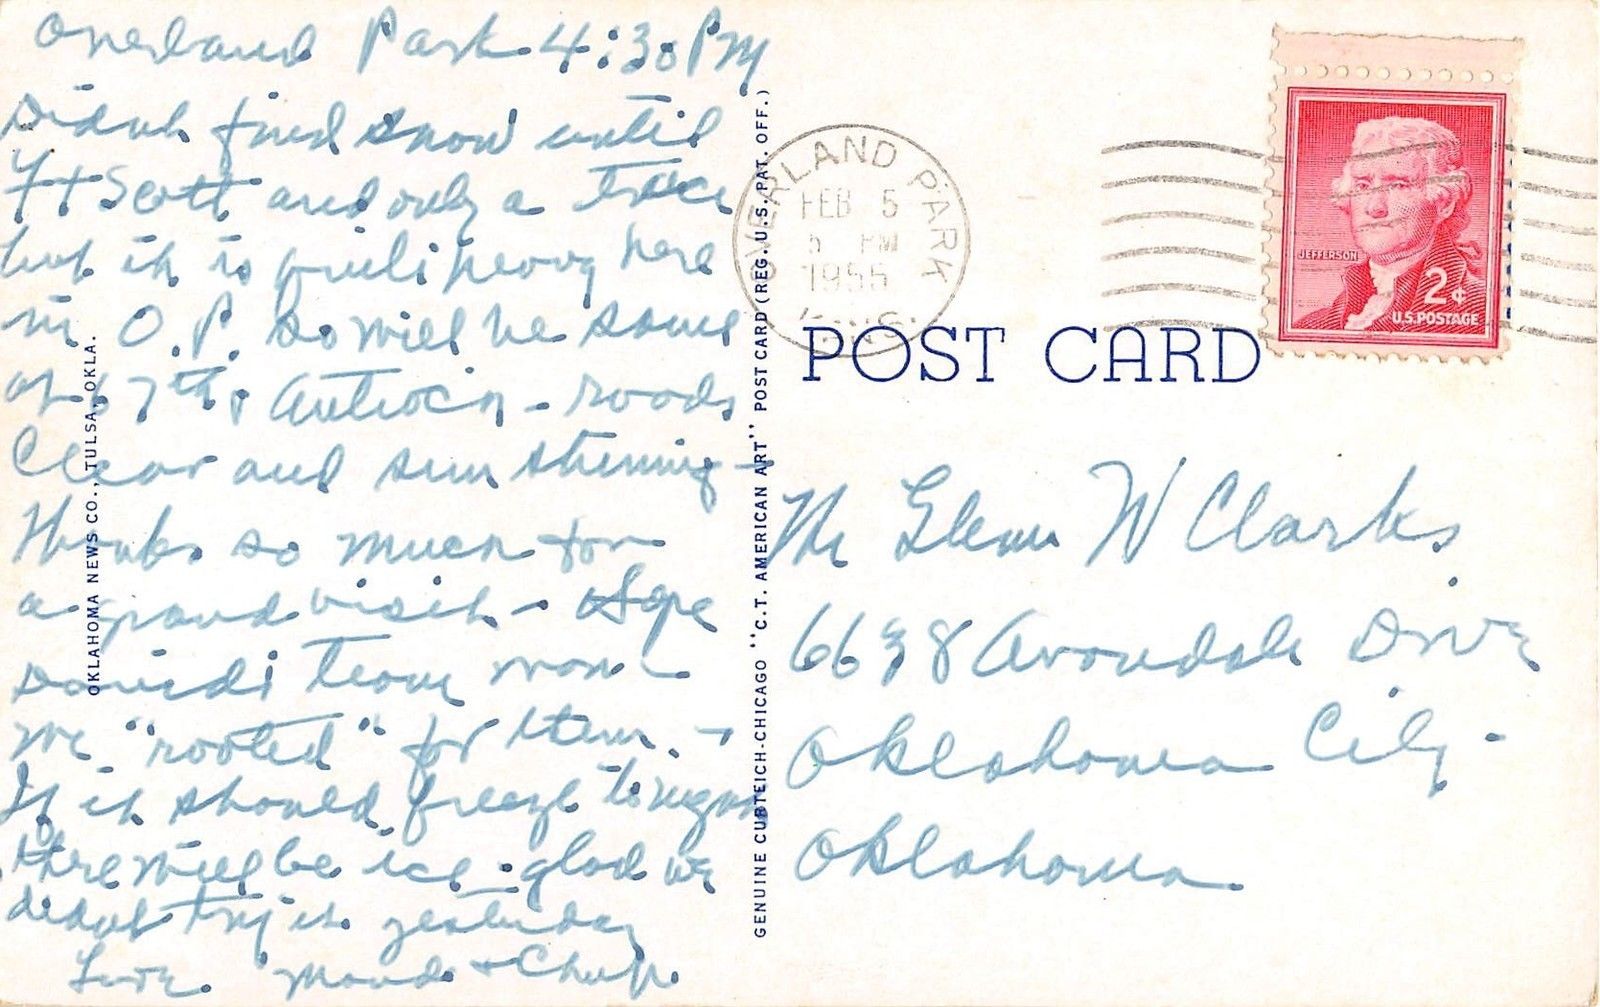 Overland Park 4:30 PM
Didnt find snow until
Ft Scott and only a trace
but it is quite heavy here
in O.P. So will be some
at 67th & Antioch - roads
Clear and sun shining -
Thanks so much for
a grand visit - Hope
David's team won
we "rooted" for them. -
If it should freeze tonight
there will be ice - glad we
didnt try it yesterday
Love. Maud + Chap.
OKLAHOMA NEWS CO., TULSA, OKLA.
GENUINE CURTEICH-CHICAGO "C.T. AMERICAN ART" POST CARD (REG. U.S. PAT. OFF.)
OVERLAND PARK
FEB 5
5 PM
1955
KANS.
JEFFERSON
2¢
U.S. POSTAGE
POST CARD
Mr Glenn W Clarks
6638 Avondale Drive
Oklahoma City -
Oklahoma.